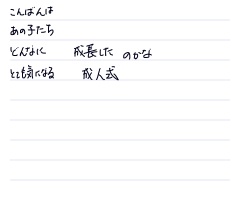 こんばんは
あの子たち
どんなに 成長した のかな
とても気になる 成人式